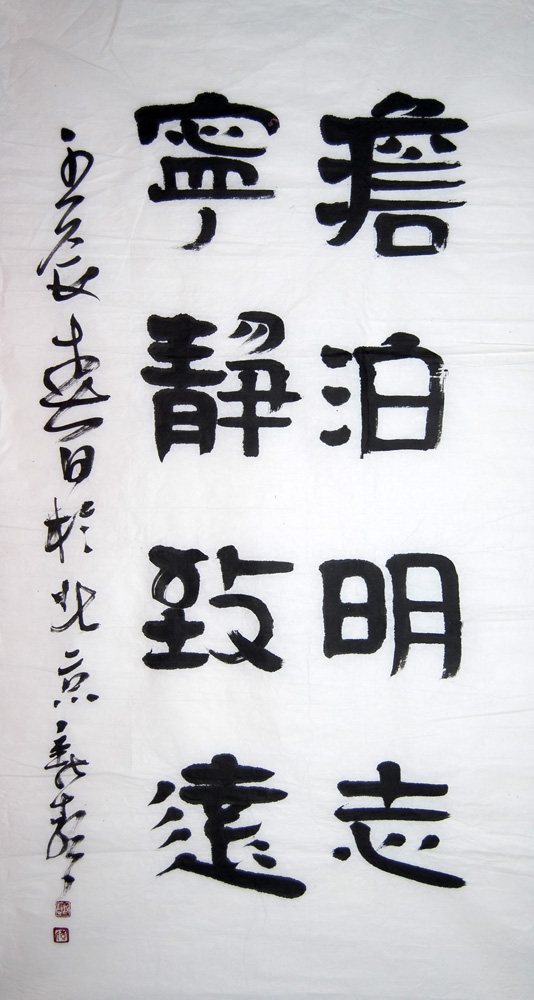 澹泊明志
寧靜致遠
壬辰春日於北京